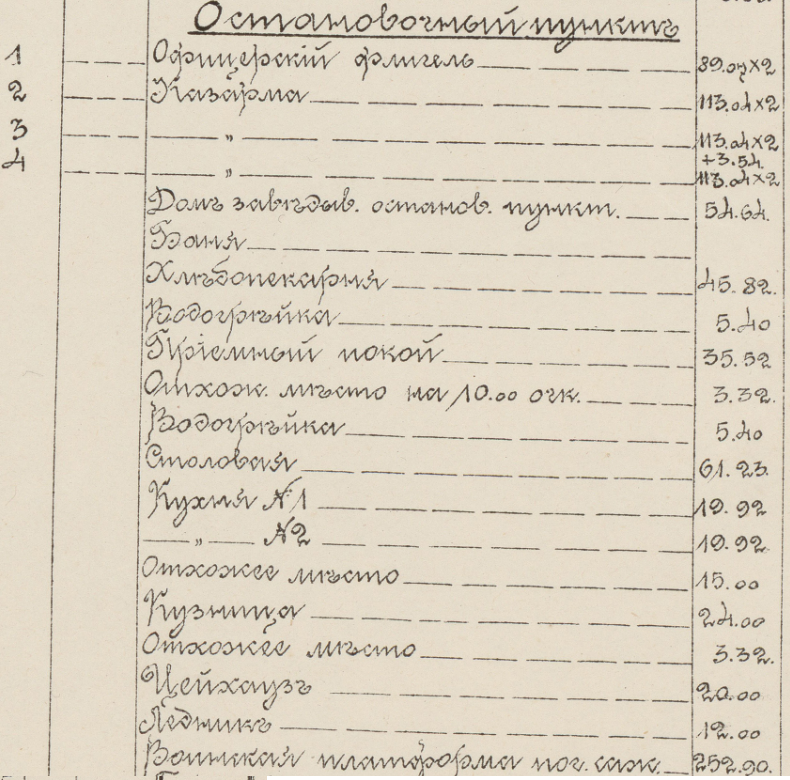 Остановочный пунктъ
1 Офицерскій флигель 89.07×2
2 Казарма 113.04×2
3 " 113.04×2
+3.54
4 " 113.04×2
Домъ завѣдыв. останов. пункт. 54.64.
Баня
Хлѣбопекарня 45.82.
Водогрѣйка 5.40
Пріемный покой 35.52
Отхож. мѣсто на 10.00 очк. 3.32.
Водогрѣйка 5.40
Столовая 61.23.
Кухня №1 19.92
" №2 19.92
Отхожее мѣсто 15.00
Кузница 24.00
Отхожее мѣсто 3.32.
Цейхаузъ 20.00
Ледникъ 12.00
Воинская платформа пог. саж. 252.90.